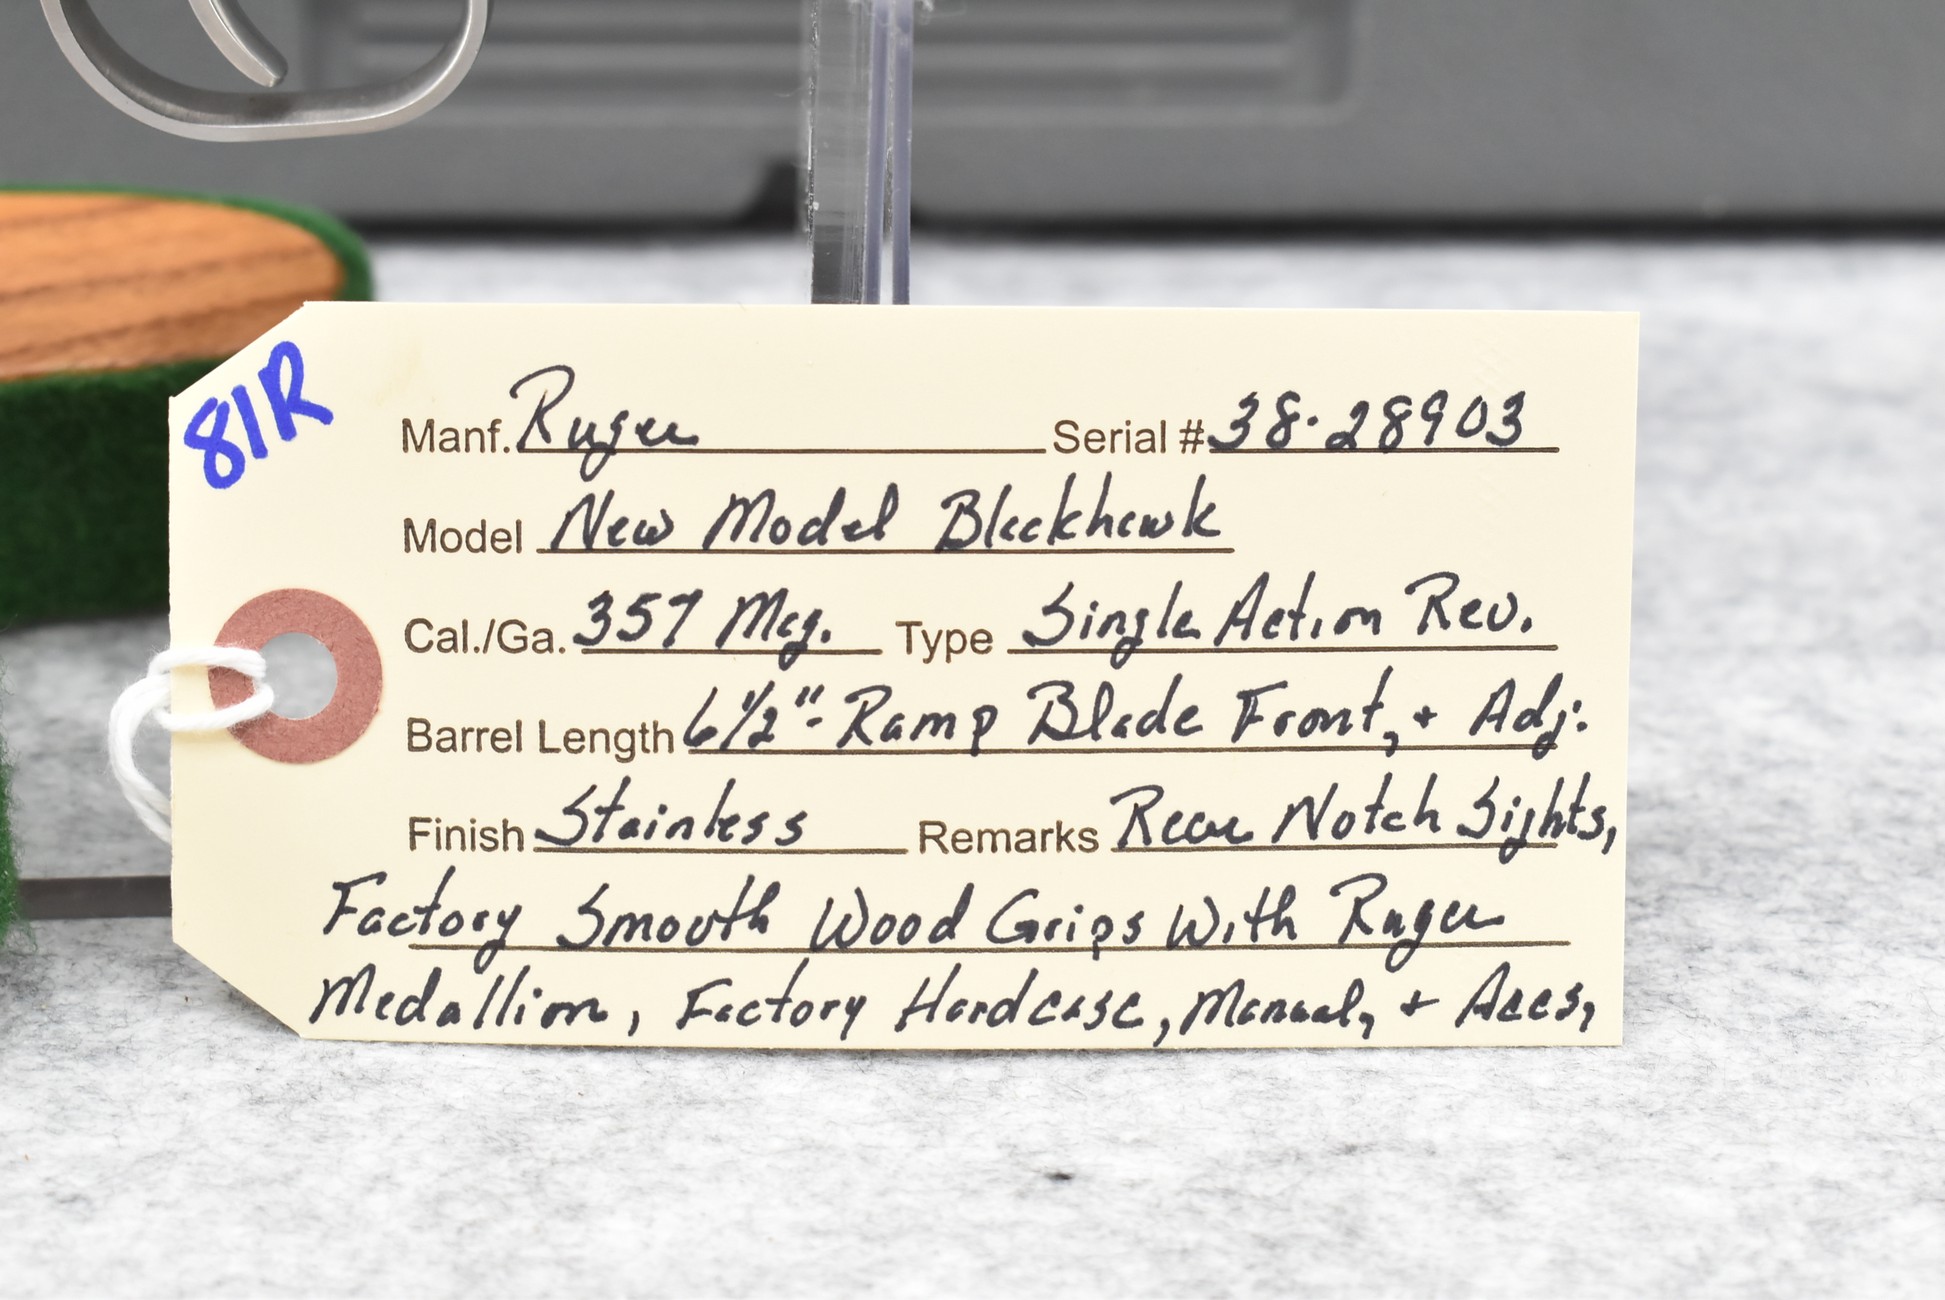 81R
Manf. Ruger Serial # 38-28903
Model New Model Blackhawk
Cal./Ga. 357 Mag. Type Single Action Rev.
Barrel Length 6 1/2"- Ramp Blade Front, + Adj.
Finish Stainless Remarks Rear Notch Sights,
Factory Smooth Wood Grips With Ruger
Medallion, Factory Hardcase, Manual, + Aces,